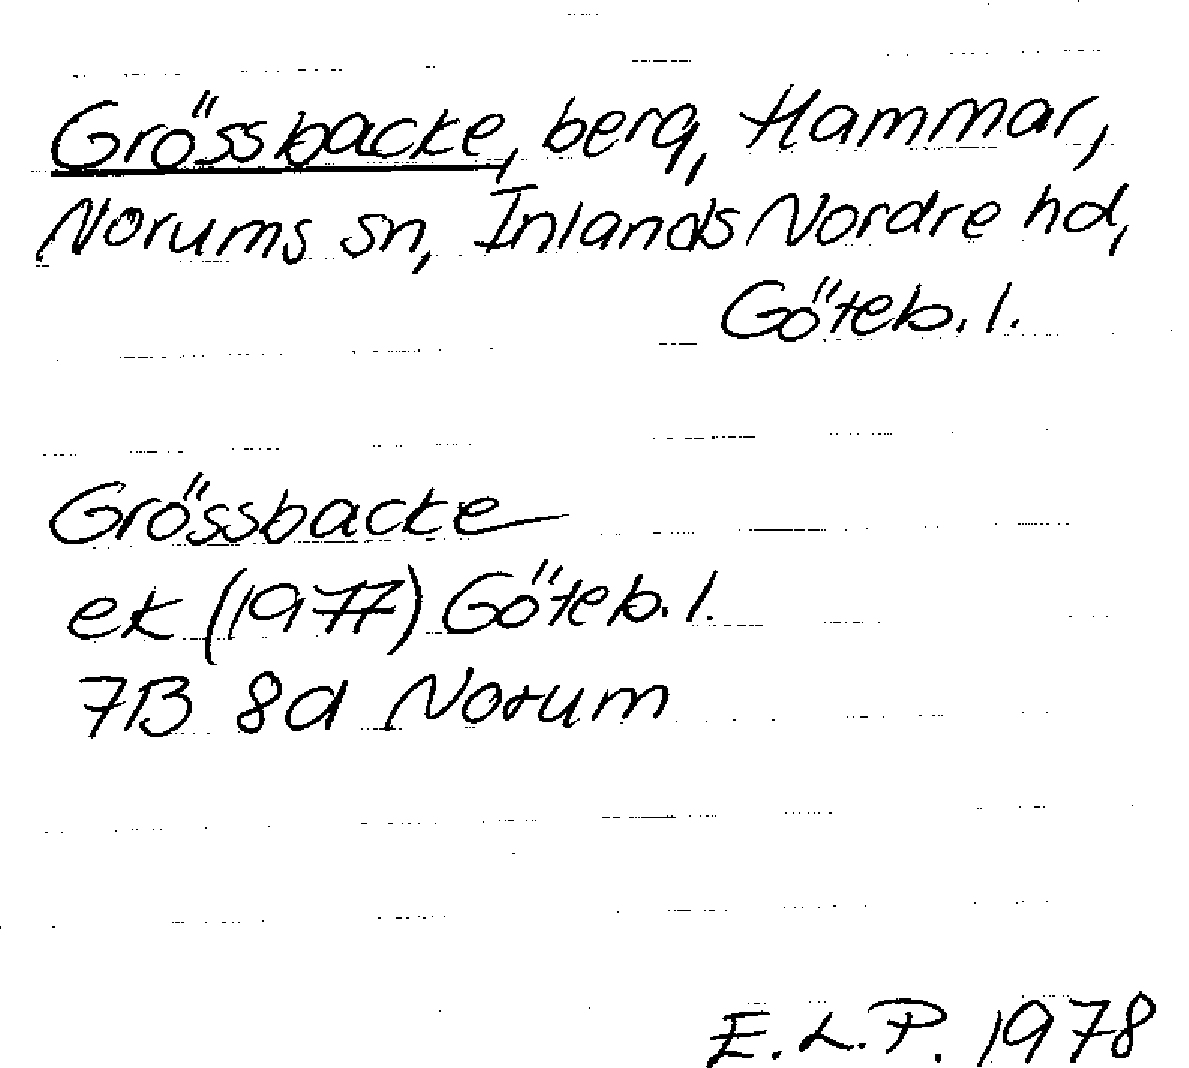 Grössbacke, berg, Hammar,
Norums sn, Inlands Nordre hd,
Göteb. l.
Grössbacke
ek (1977) Göteb. l.
7B 8d Norum
E.L.P. 1978